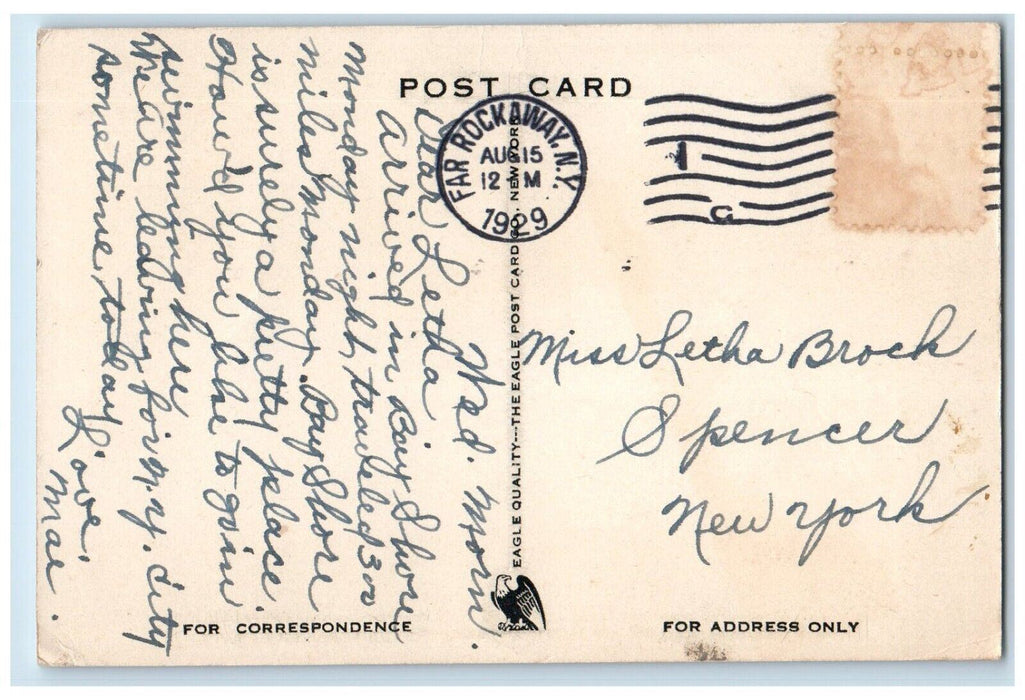 POST CARD
FAR ROCKAWAY, N.Y.
AUG 15
12 M
1929
1
C
Wed. Morn.
Dear Letha
Arrived in Bay Shore
Monday night, traveled 300
miles Monday. Bay Shore
is surely a pretty place.
How'd you like to go in
swimming here
We are leaving for N.Y. City
sometime today.
Love,
Mae.
EAGLE QUALITY---THE EAGLE POST CARD CO. NEW YORK
Miss Letha Brock
Spencer
New York
FOR CORRESPONDENCE
FOR ADDRESS ONLY